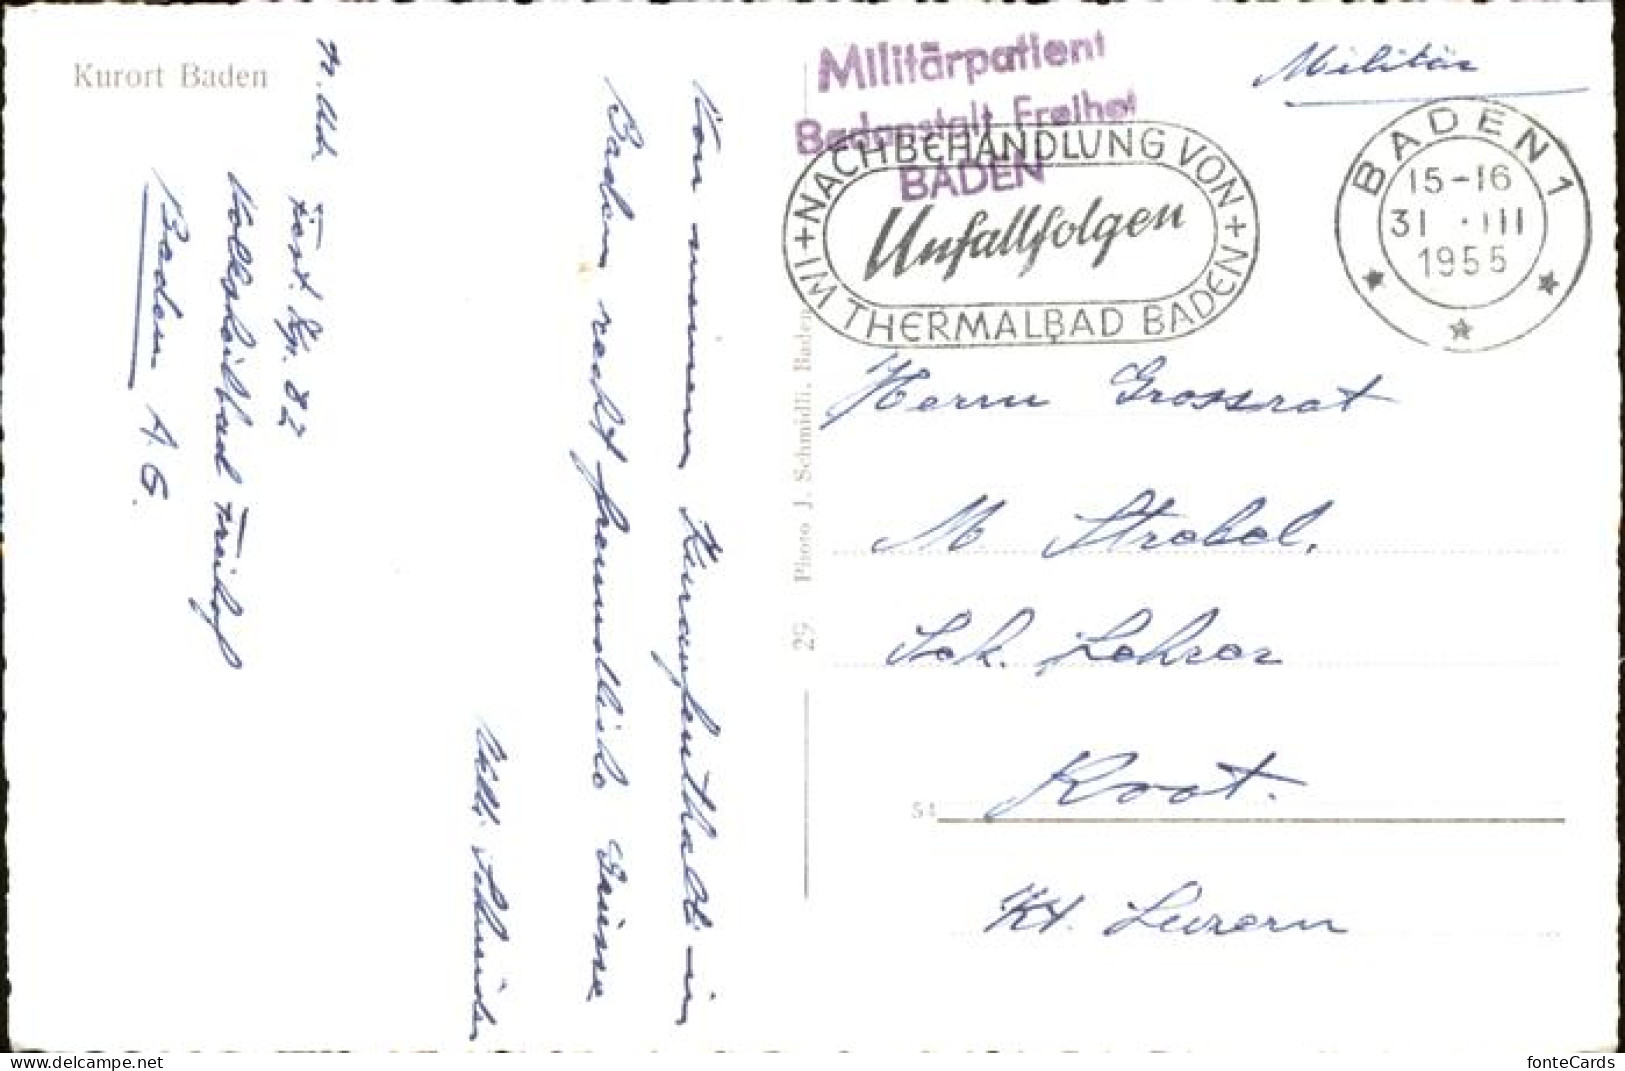 Kurort Baden
Militärpatient
Badanstalt Freihof
BADEN
Militär
+ NACHBEHANDLUNG VON +
Unfallfolgen
IM THERMALBAD BADEN
BADEN 1
15-16
31 · III
1955
Von meinem Kuraufenthalt in
Baden recht freundliche Grüsse
Willi Schnider
Fest. Kp. 82
Volksheilbad Freihof
Baden A.G.
29 Photo J. Schmidli, Baden
Herrn Grossrat
M Strebel.
Sek. Lehrer
Root.
54
Kt. Luzern
delcampe.net
fonteCards